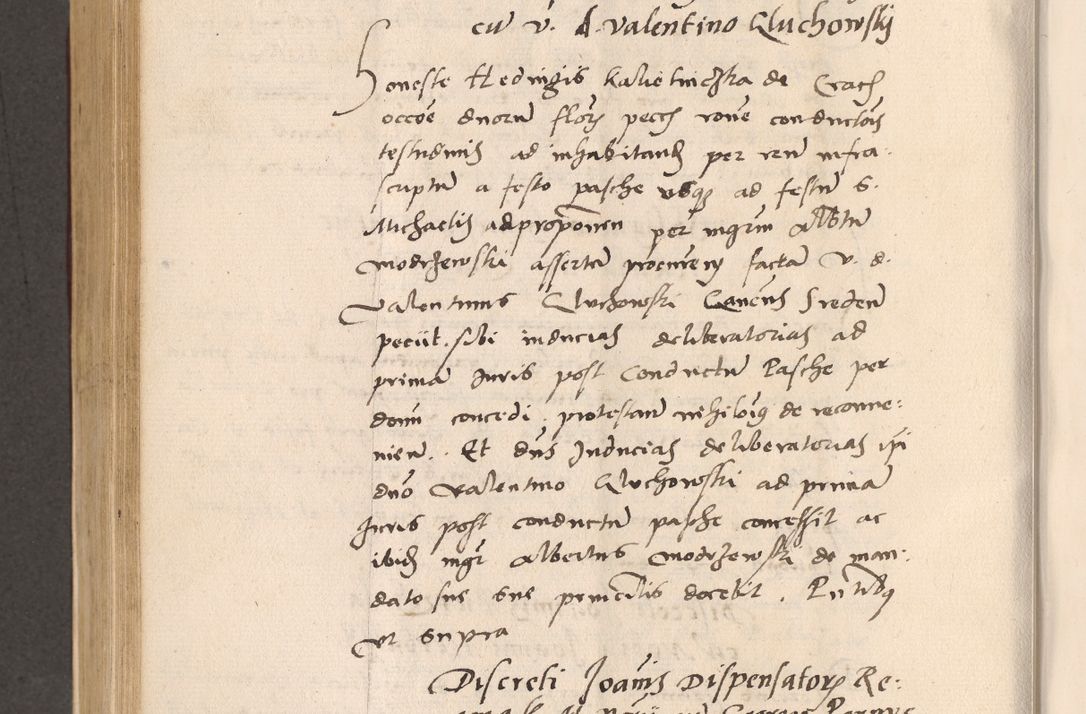 cu v. d. Valentino Gluchowski
Honeste Hedwigis Kalietniczka de Crac
occoe duoru flor pecch rone conductois
testudinis ad inhabitand per reu infra-
scriptu a festo pasche usq ad festu S.
Michaelis ad proponen per mgrm Albtu
Modrzewski assertu procurem facta v. d.
Valentinus Gluchowski Canens Sredeñ
peciit sibi inducias deliberatorias ad
prima Juris post Conductu Pasche per
domi concedi. protestan nihilõiq de reconve:
nien. Et dns Inducias deliberatorias ipi
dno Valentino Gluchowski ad prima
Juris post conductu pasche concessit ac
ibid mgr Albertus Modrzewski de man:
dato sue sue principalis docebit. Pntibq
Ut supra
Discreti Joanis Dispensator Re: